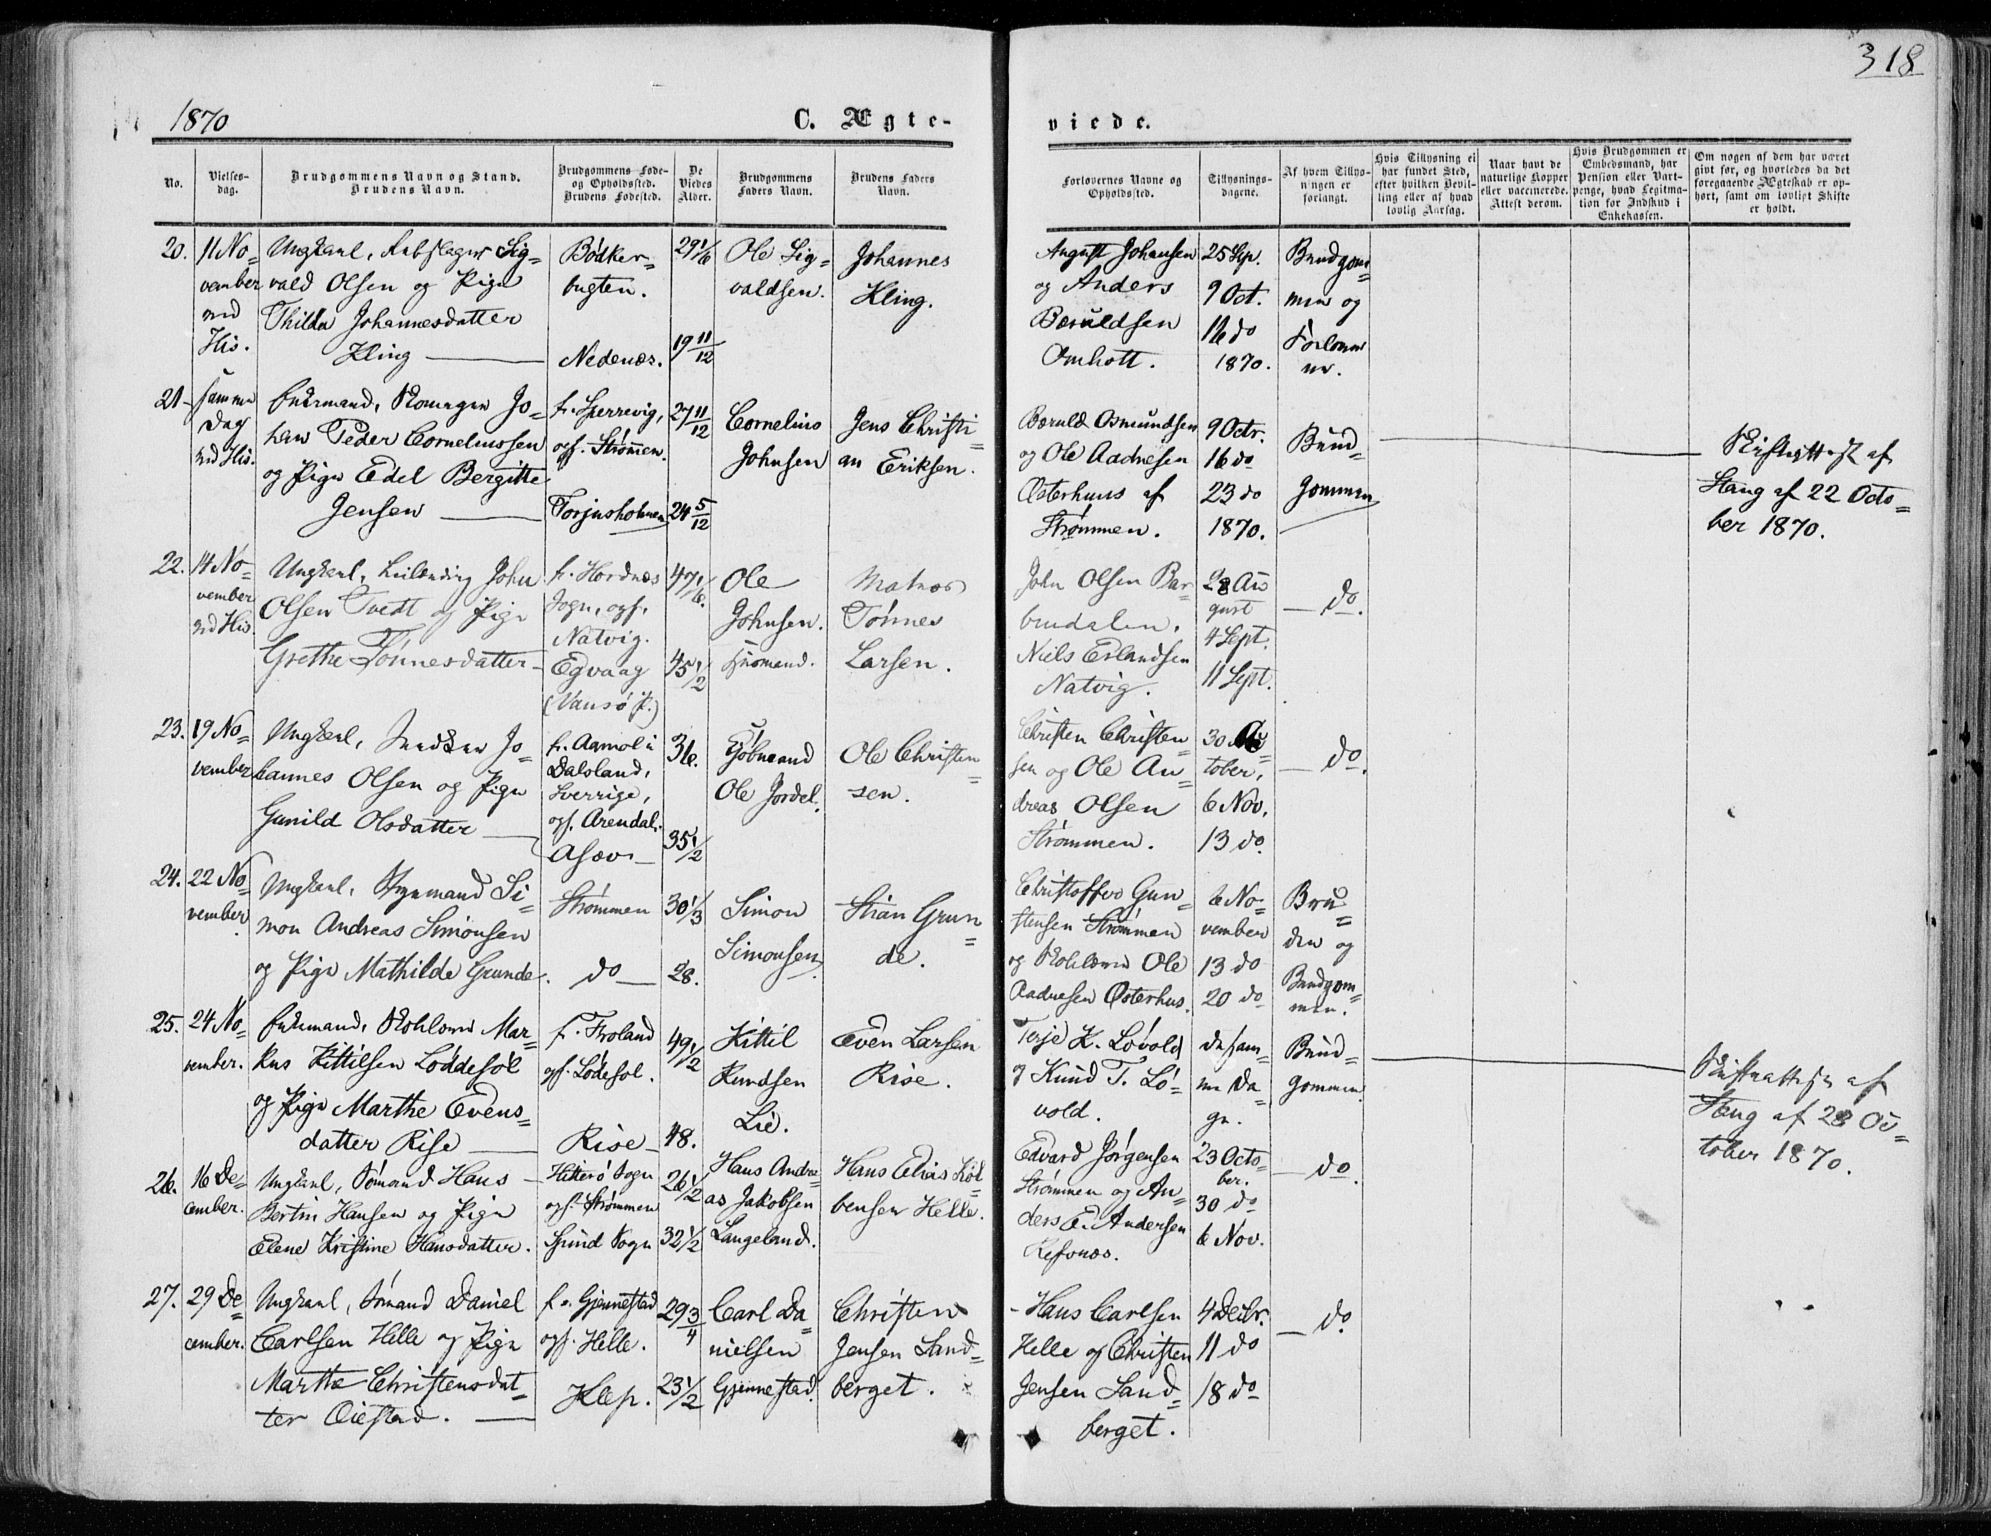 318
1870
C. Ægte-
viede.
No.
Vielses-
dag.
Brudgommens Navn og Stand.
Brudens Navn.
Brudgommens Føde-
og Opholdssted.
Brudens Fødested.
De
Viedes
Alder.
Brudgommens
Faders Navn.
Brudens Faders
Navn.
Forlovernes Navne og
Opholdssted.
Tillysnings-
dagene.
Af hvem Tillys-
ningen er
forlangt.
Hvis Tillysning ei
har fundet Sted,
efter hvilken Bevil-
ling eller af hvad
lovlig Aarsag.
Naar havt de
naturlige Kopper
eller vaccinerede.
Attest derom.
Hvis Brudgommen er
Embedsmand, har
Pension eller Vart-
penge, hvad Legitma-
tion for Indskud i
Enkekassen.
Om nogen af dem har været
givt før, og hvorledes da det
foregaaende Ægteskab er op-
hørt, samt om lovligt Skifte
er holdt.
20.
11 No=
vember
ved
His.
Ungkarl, Rebslager Sig=
vald Olsen og Pige
Thilda Johannesdatter
Kling
Bødker=
bugten.
Nedenæs.
29 1/6
19 11/12
Ole Sig=
valdsen.
Johannes
Kling.
August Johansen
og Anders
Bæruldsen
Omholt.
25 Sep.
9 Oct.
16 do
1870.
Brudgom=
men og
Forlover
ne.
21
samme
Dag
ved His.
Enkemand, Jo=
han Peder Corneliussen
og Pige Edel Bergitte
Jensen
f. Sperrevig,
opf. Strømmen.
Torjusholmen
27 11/12
24 5/12
Cornelius
Johnsen
Jens Christi=
an Eriksen.
Bæruld Osmundsen
og Ole Aadnesen
Østerhuus af
Strømmen.
9 Octr.
16 do
23 do
1870.
Brud=
gommen
Skifteattest af
Stang af 22 Octo=
ber 1870.
22.
14 No=
vember
ved His.
Ungkarl, John
Olsen Tvedt og Pige
Grethe Tønnesdatter
f. Hordnæs
Sogn, opf.
Natvig.
Egvaag
(Vansø P.)
47 1/6.
45 1/2
Ole
Johnsen.
Husmand.
Matros
Tønnes
Larsen.
John Olsen Bar
budalen.
Niels Erlandsen
Natvig.
28 Au
gust
4 Sept.
11 Sept.
do.
23.
19 No=
vember
Ungkarl, Snedker Jo=
hannes Olsen og Pige
Gunild Olsdatter
f. Aamol i
Dalsland,
Sverrige,
opf. Arendal.
Asæv
36.
35 1/2
Kjøbmand
Ole Jordel.
Ole Christen=
sen.
Christen Christen=
sen og Ole An=
dreas Olsen
Strømmen.
30 Oc
tober.
6 Nov.
13 do
do.
24.
22 No=
vember
Ungkarl, Styrmand Si=
mon Andreas Simonsen
og Pige Mathilde Grunde.
Strømmen
do
30 1/3
28.
Simon
Simonsen
Stian Grun=
de.
Christoffer Gun=
stensen Strømmen
og Ole
Aadnesen Østerhus.
6 No=
vember
13 do
20 do
Bru=
den og
Brudgom=
men.
25.
24 No=
vember.
Enkemand, Mar=
kus Kittilsen Løddesøl
og Pige Marthe Evens=
datter Rise
f. Froland
opf. Lødesøl.
Rise
49 1/2
48.
Kittil
Knudsen
Lie.
Even Larsen
Rise.
Terje K. Løvold
og Knud T. Lø=
vold.
de sam=
me Da=
ge.
Brud=
gommen
Skifteattest af
Stang af 28 Oc=
tober 1870.
26.
16 De=
cember.
Ungkarl, Sømand Hans
Bertin Hansen og Pige
Elene Kristine Hansdatter.
Hitterø Sogn
opf. Strømmen
Grind Sogn
26 1/2
32 1/2
Hans Andre
as Jakobsen
Langeland.
Hans Elias
bensen Helle.
Edvard Jørgensen
Strømmen og An=
ders E. Andersen
Refsnæs.
23 Octo=
ber.
30 do
6 Nov.
do.
27.
29 De
cember.
Ungkarl, Sømand Daniel
Carlsen Helle og Pige
Marthe Christensdat=
ter Øiestad.
f. Gjennestad
opf. Helle.
Klep.
29 3/4
23 1/2
Carl Da=
nielsen
Gjennestad.
Christen
Jensen Sand=
berget.
Hans Carlsen
Helle og Christen
Jensen Sand=
berget.
4 Decbr.
11 do
18 do
do.